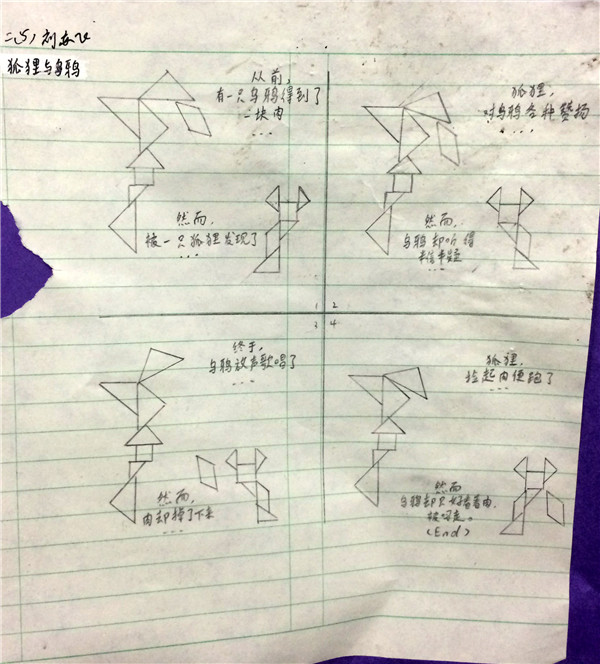 狐狸与乌鸦
从前,
有一只乌鸦得到了
一块肉
...
然而,
被一只狐狸发现了
...
狐狸,
对乌鸦各种赞扬
...
然而,
乌鸦却听得
半信半疑
...
1 2
3 4
终于,
乌鸦放声歌唱了
...
然而,
肉却掉了下来
...
狐狸,
捡起肉便跑了
...
然而
乌鸦却只好看着肉,
被叼走。
(End)